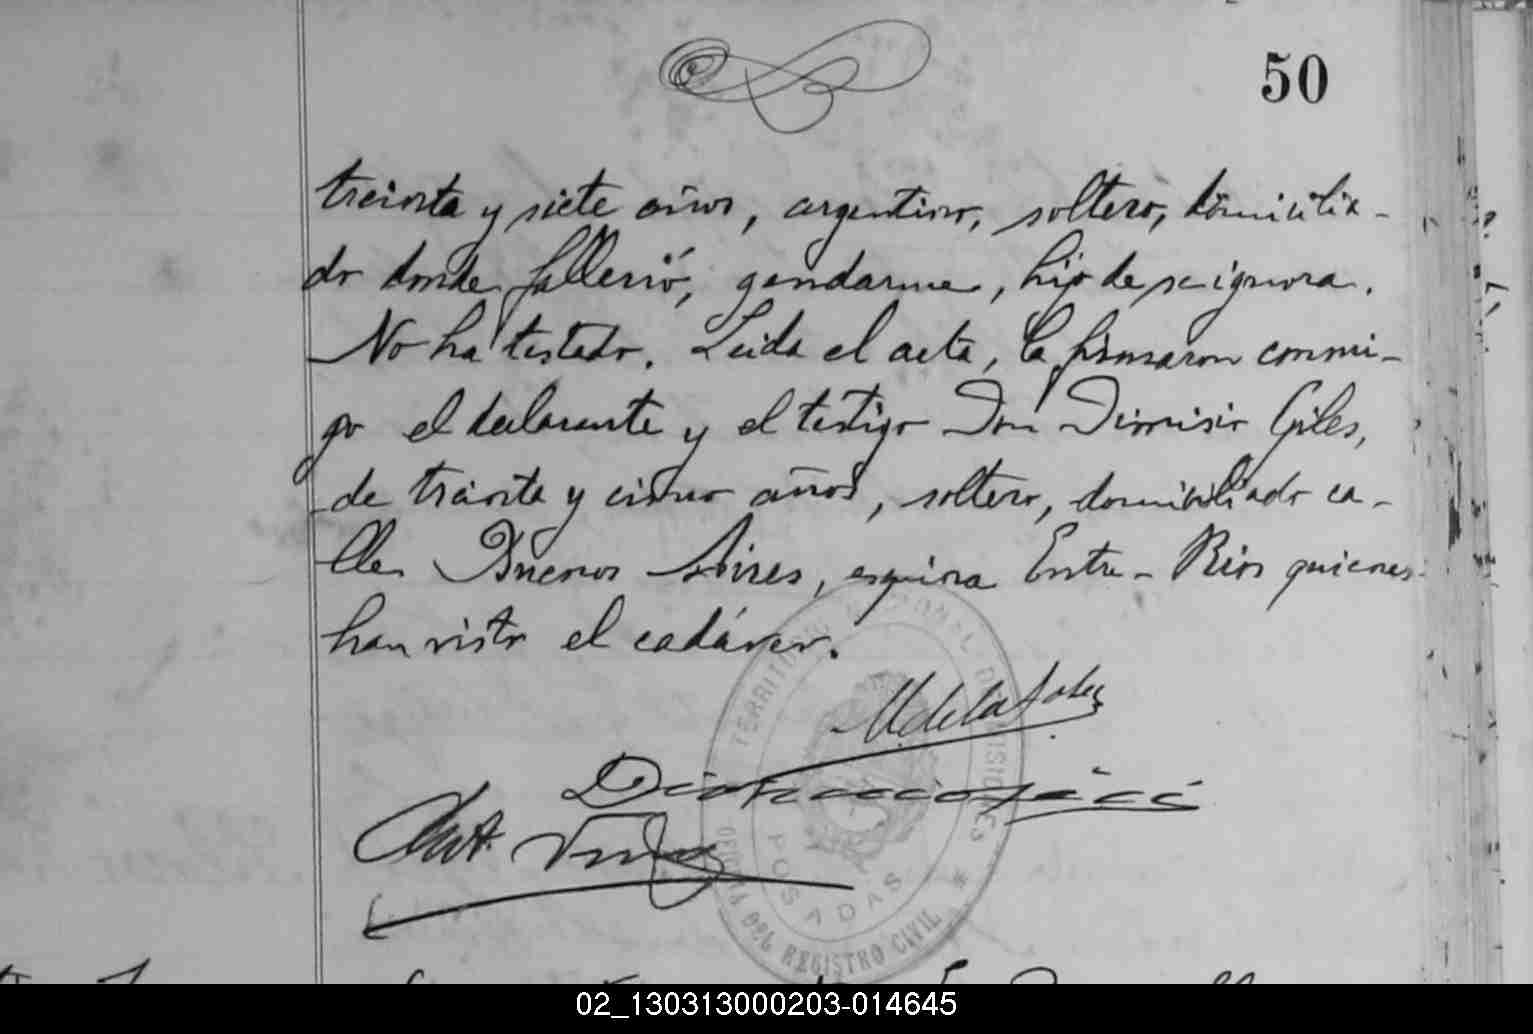 50
treinta y siete años, argentino, soltero, domicilia-
do donde falleció, gendarme, hijo de se ignora.
No ha testado. Leida el acta, la firmaron conmi-
go el declarante y el testigo Don Dionisio Giles,
de treinta y cinco años, soltero, domiciliado ca-
lle Buenos Aires, esquina Entre-Rios quienes
han visto el cadáver.
TERRITORIO NACIONAL DE MISIONES
POSADAS
OFICINA DEL REGISTRO CIVIL
02_130313000203-014645